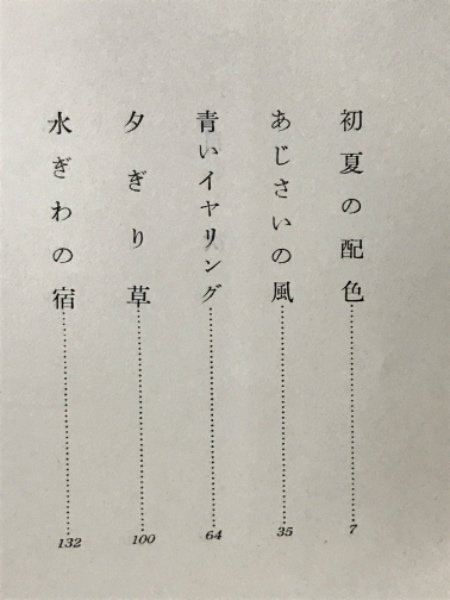 初夏の配色……………………7
あじさいの風……………………35
青いイヤリング……………………64
夕ぎり草……………………100
水ぎわの宿……………………132